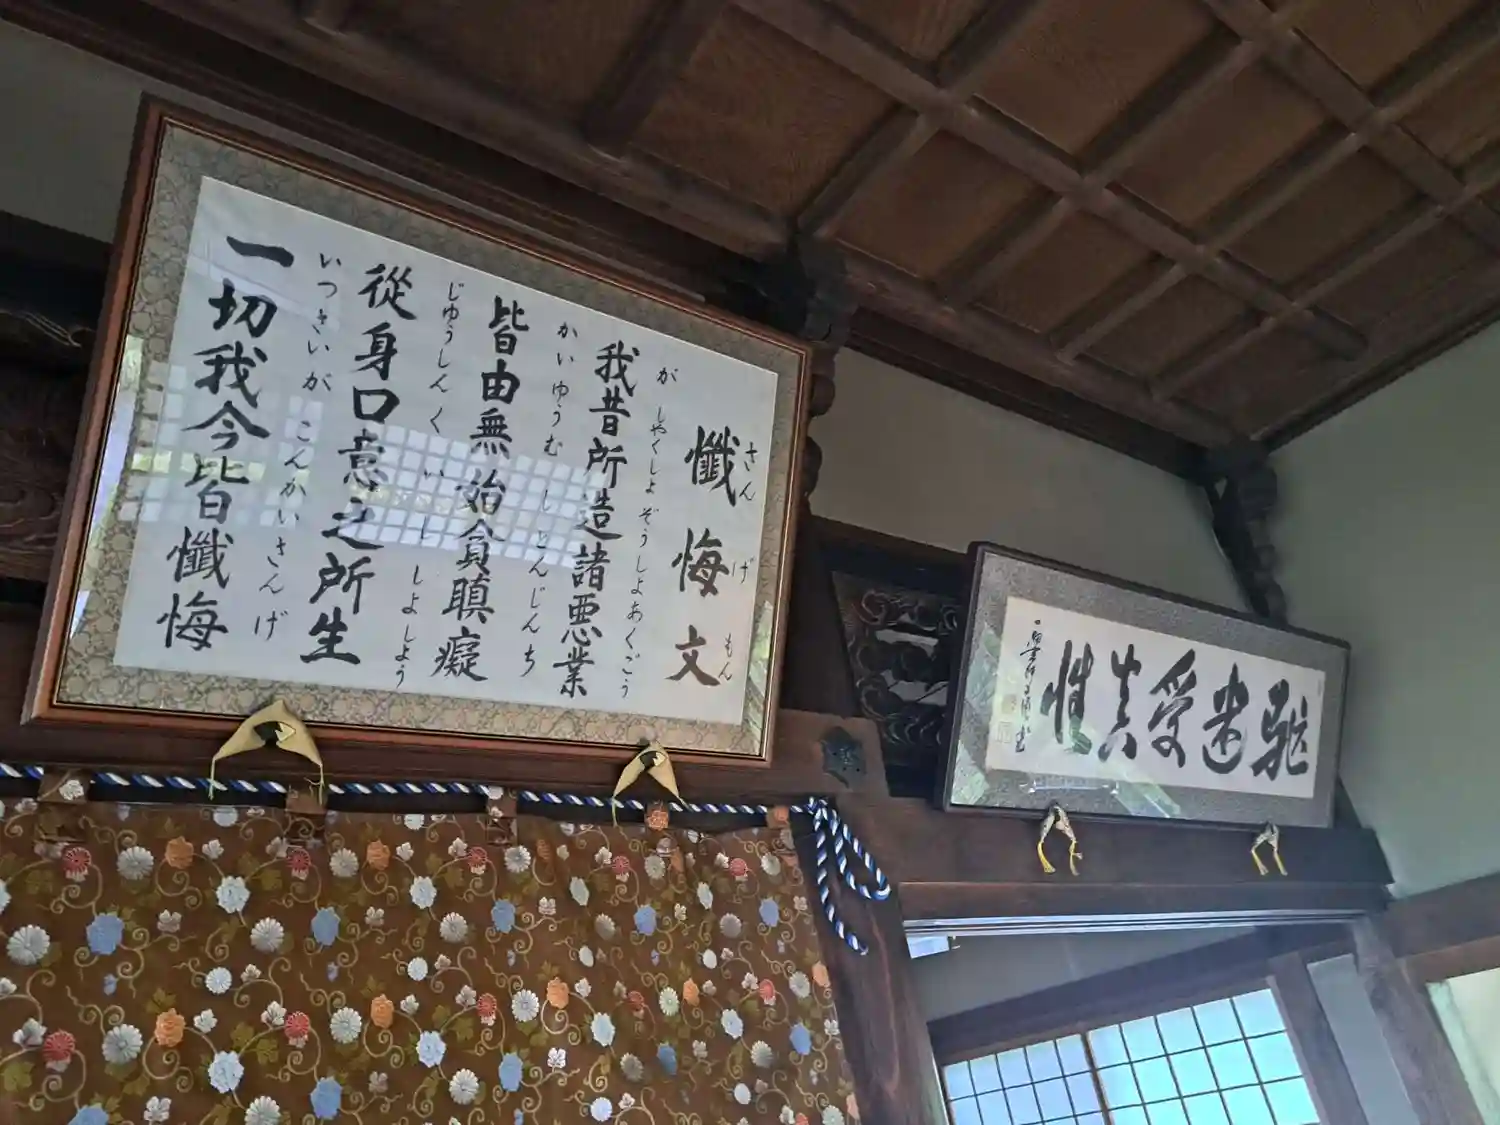 懺悔文
さんげもん
我昔所造諸悪業
がしゃくしょぞうしよあくごう
皆由無始貪瞋癡
かいゆうむしとんじんち
從身口意之所生
じゆうしんくいししよしよう
一切我今皆懺悔
いつさいがこんかいさんげ
受真性